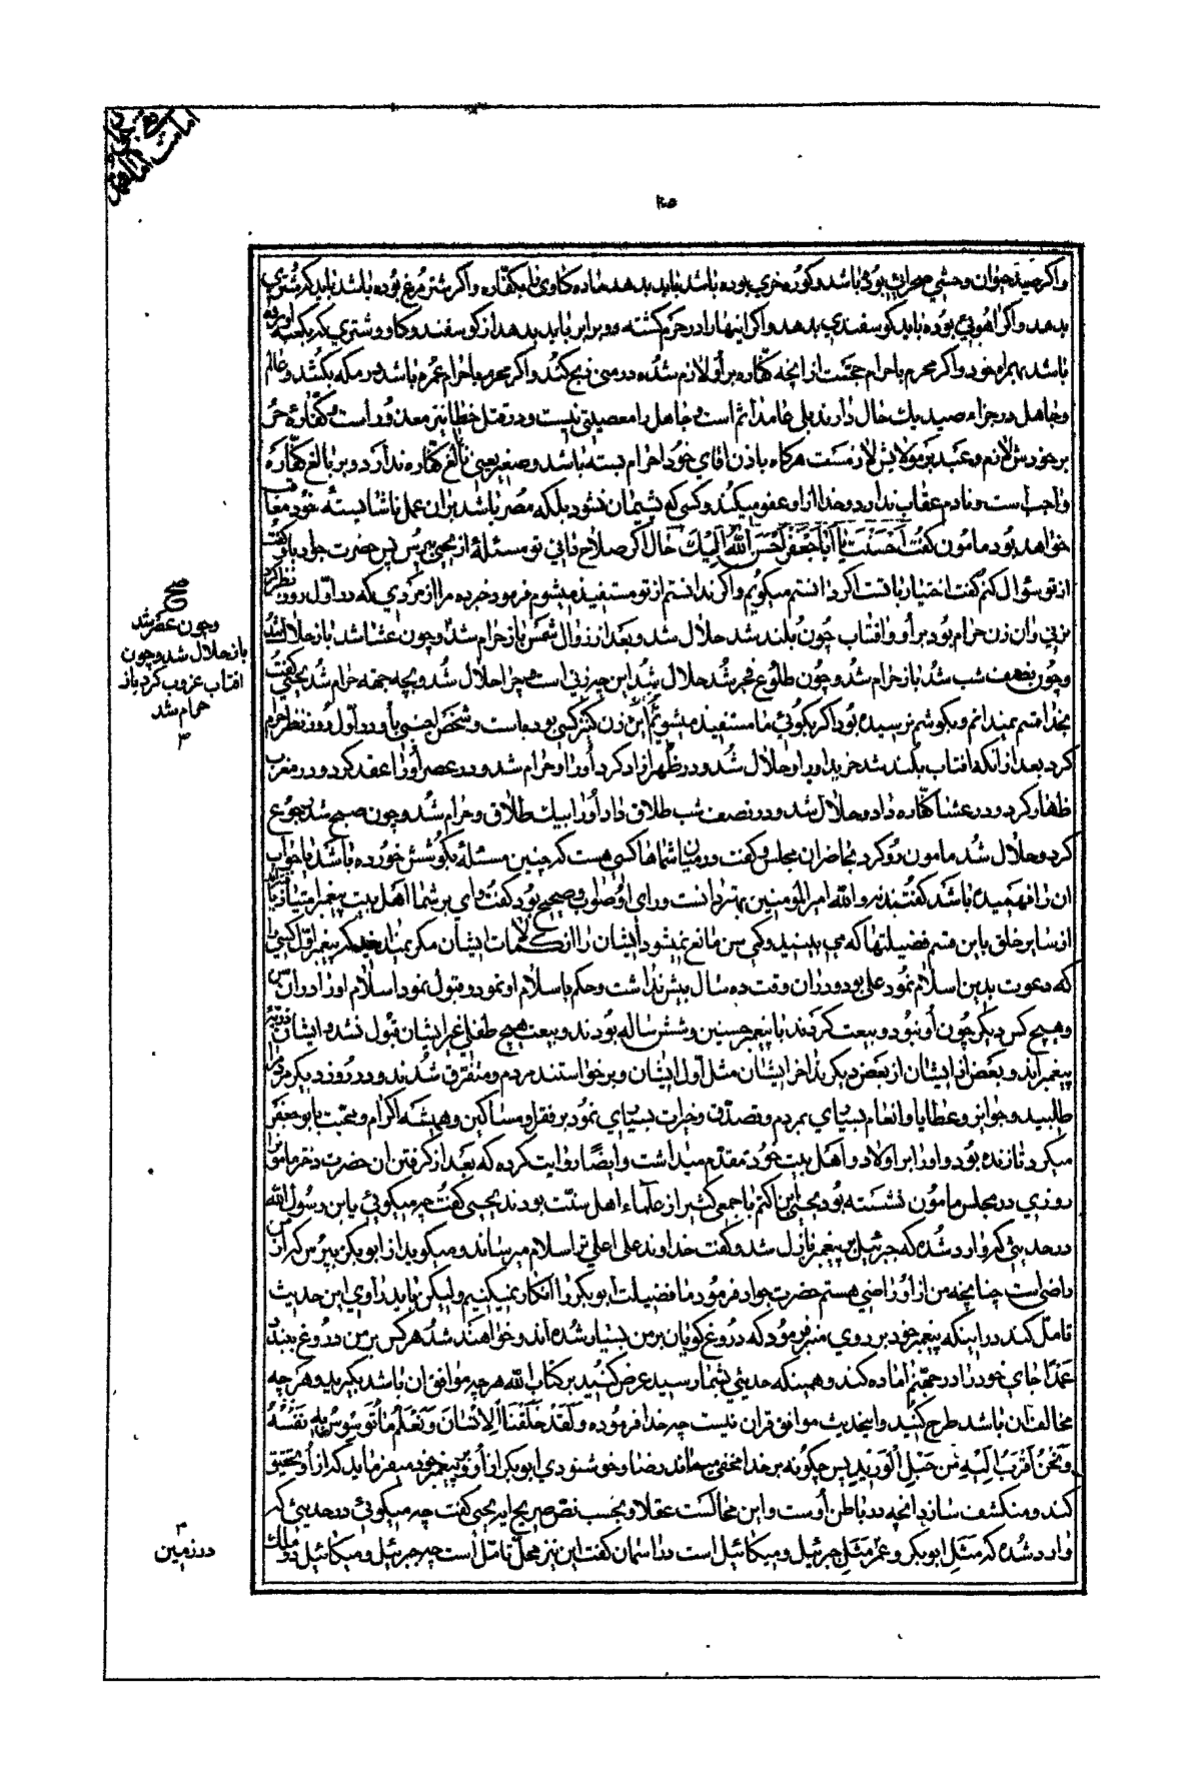 ۲۰۵
واکر صید حیوان وحشی صحرائی بوده باشد و کوره خری بوده باشد باید بدهد ماده کاوی را بکفاره واکر شتر مرغ بوده باشد باید که شتری
بدهد واکر اهوئی بوده باید کوسفندی بدهد واکر اینها را در حرم کشته دو برابر باید بدهد از کوسفند و کاو و شتری که بکعبه
باشد بهمراه خود واکر محرم باحرام حج است از انچه کفاره بر او لازم شده در منی ذبح کند واکر محرم باحرام عمره باشد در مکه بکشد و عالم
و جاهل در جزاء صید یک حال دارند بلی عامد اثم است و جاهل را معصیتی نیست و در قتل خطا نیز معذور است و کفاره حر
بر خودش لازم و عبد بر مولایش لازمست هرکاه باذن اقای خود احرام بسته باشد و صغیر یعنی نابالغ کفاره ندارد و بر بالغ کفاره
واجب است و نادم عقاب ندارد و خدا از او عفو میکند و کسی که پشیمان نشود بلکه مصر باشد بران عمل ناشایسته خود معاقب
خواهد بود مامون کفت احسنت یا ابا جعفر احسن الله الیک حال اکر صلاح دانی تو مسئله از یحیی بپرس پس حضرت جواد باو کفت
از تو سؤال کنم کفت اختیار با تست اکر دانستم میکویم واکر ندانستم از تو مستفید میشوم فرمود خبر ده مرا از مردی که در اول روز نظر کرد
بزنی وان زن حرام بود بر او و افتاب چون بلند شد حلال شد و بعد از زوال شمس باز حرام شد و چون عشا شد باز حلال شد
و چون نصف شب شد باز حرام شد و چون طلوع فجر شد حلال شد این چه زنی است و چرا حلال شد و بچه جهه حرام شد یحیی کفت
بخدا قسم نمیدانم و بکوشم نرسیده بود اکر بکوئی ما مستفید میشویم این زن کنیز کسی بوده است و شخص اجنبی باو در اول روز نظر حرام
کرد بعد از انکه افتاب بلند شد خرید او را و حلال شد و در ظهر ازاد کرد او را و حرام شد و در عصر او را عقد کرد و در مغرب
ظهار کرد و در عشا کفاره داد و حلال شد و در نصف شب طلاق داد او را بیک طلاق و حرام شد و چون صبح شد رجوع
کرد و حلال شد مامون رو کرد بحاضران مجلس و کفت در میان شماها کسی هست که چنین مسئله بکوشش خورده باشد یا جواب
ان را فهمیده باشد کفتند نه والله امیر المؤمنین بهتر دانست و رای او صواب و صحیح بود کفت وای بر شما اهل بیت پیغمبر امتیاز
از سایر خلق باین قسم فضیلتها که می بینید و کمی سن مانع نمیشود ایشان را از کمالات ایشان مکر نمیدانید که پیغمبر اول کسی را
که دعوت بدین اسلام نمود علی بود و در ان وقت ده سال بیش نداشت و حکم باسلام او نمود و قبول نمود اسلام او را در ان سن
و هیچ کس دیکر چون او نبود و بیعت کردند با پیغمبر حسنین و شش ساله بودند و بیعت هیچ طفلی غیر ایشان قبول نشد و ایشان ذریه
پیغمبراند و بعض از ایشان از بعض دیکرند اخر ایشان مثل اول ایشان و برخواستند مردم و متفرق شدند و در روز دیکر مردم را
طلبید و جوایز و عطایا و انعام بسیاری بمردم و تصدق و خیرات بسیاری نمود بر فقرا و مساکین و همیشه اکرام و محبت بابو جعفر
میکرد تا زنده بود و او را بر اولاد و اهل بیت خود مقدم میداشت و ایضا روایت کرده که بعد از کرفتن ان حضرت دختر مامون
روزی در مجلس مامون نشسته بود یحیی ابن اکثم با جمعی کثیر از علماء اهل سنت بودند یحیی کفت چه میکوئی یا بن رسول الله
در حدیثی که وارد شده که جبرئیل بر پیغمبر نازل شد و کفت خداوند علی اعلی ترا سلام میرساند و میکوید از ابوبکر بپرس که از من
راضی است چنانچه من از او راضی هستم حضرت جواد فرمود ما فضیلت ابوبکر را انکار نمیکنیم ولیکن باید راوی این حدیث
تامل کند در اینکه پیغمبر خود بر روی منبر فرمود که دروغ کویان بر من بسیار شده اند و خواهند شد هر کس بر من دروغ ببندد
عمدا جای خود را در جهنم اماده کند و همینکه حدیثی بشما رسید عرض کنید بر کتاب الله هر چه موافق ان باشد بکیرید و هر چه
مخالف ان باشد طرح کنید و اینحدیث موافق قران نیست چه خدا فرموده ولقد خلقنا الانسان ونعلم ما توسوس به نفسه
ونحن اقرب الیه من حبل الورید پس چکونه بر خدا مخفی میماند رضا و خوشنودی ابوبکر از او و پیغمبر خود میفرماید که از او تحقیق
کند و منکشف سازد انچه در باطن اوست و این محالست عقلا و بحسب نص صریح ایه یحیی کفت چه میکوئی در حدیثی که
وارد شده که مثل ابوبکر و عمر مثل جبرئیل و میکائیل است در اسمان کفت این نیز محل تامل است چه جبرئیل و میکائیل دو ملک
صح
وچون عصر شد
باز حلال شد وچون
افتاب غروب کرد باز
حرام شد
در زمین